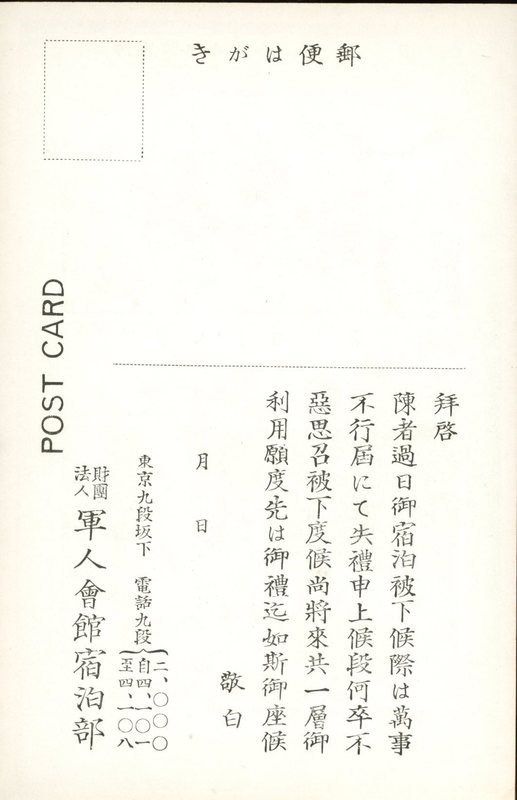 郵便はがき
POST CARD
拜啓
陳者過日御宿泊被下候際は萬事
不行屆にて失禮申上候段何卒不
惡思召被下度候尚將來共一層御
利用願度先は御禮迄如斯御座候
敬白
月 日
東京九段坂下 電話九段
二、〇〇〇
自四、一〇一
至四、一〇八
財團法人 軍人會館宿泊部